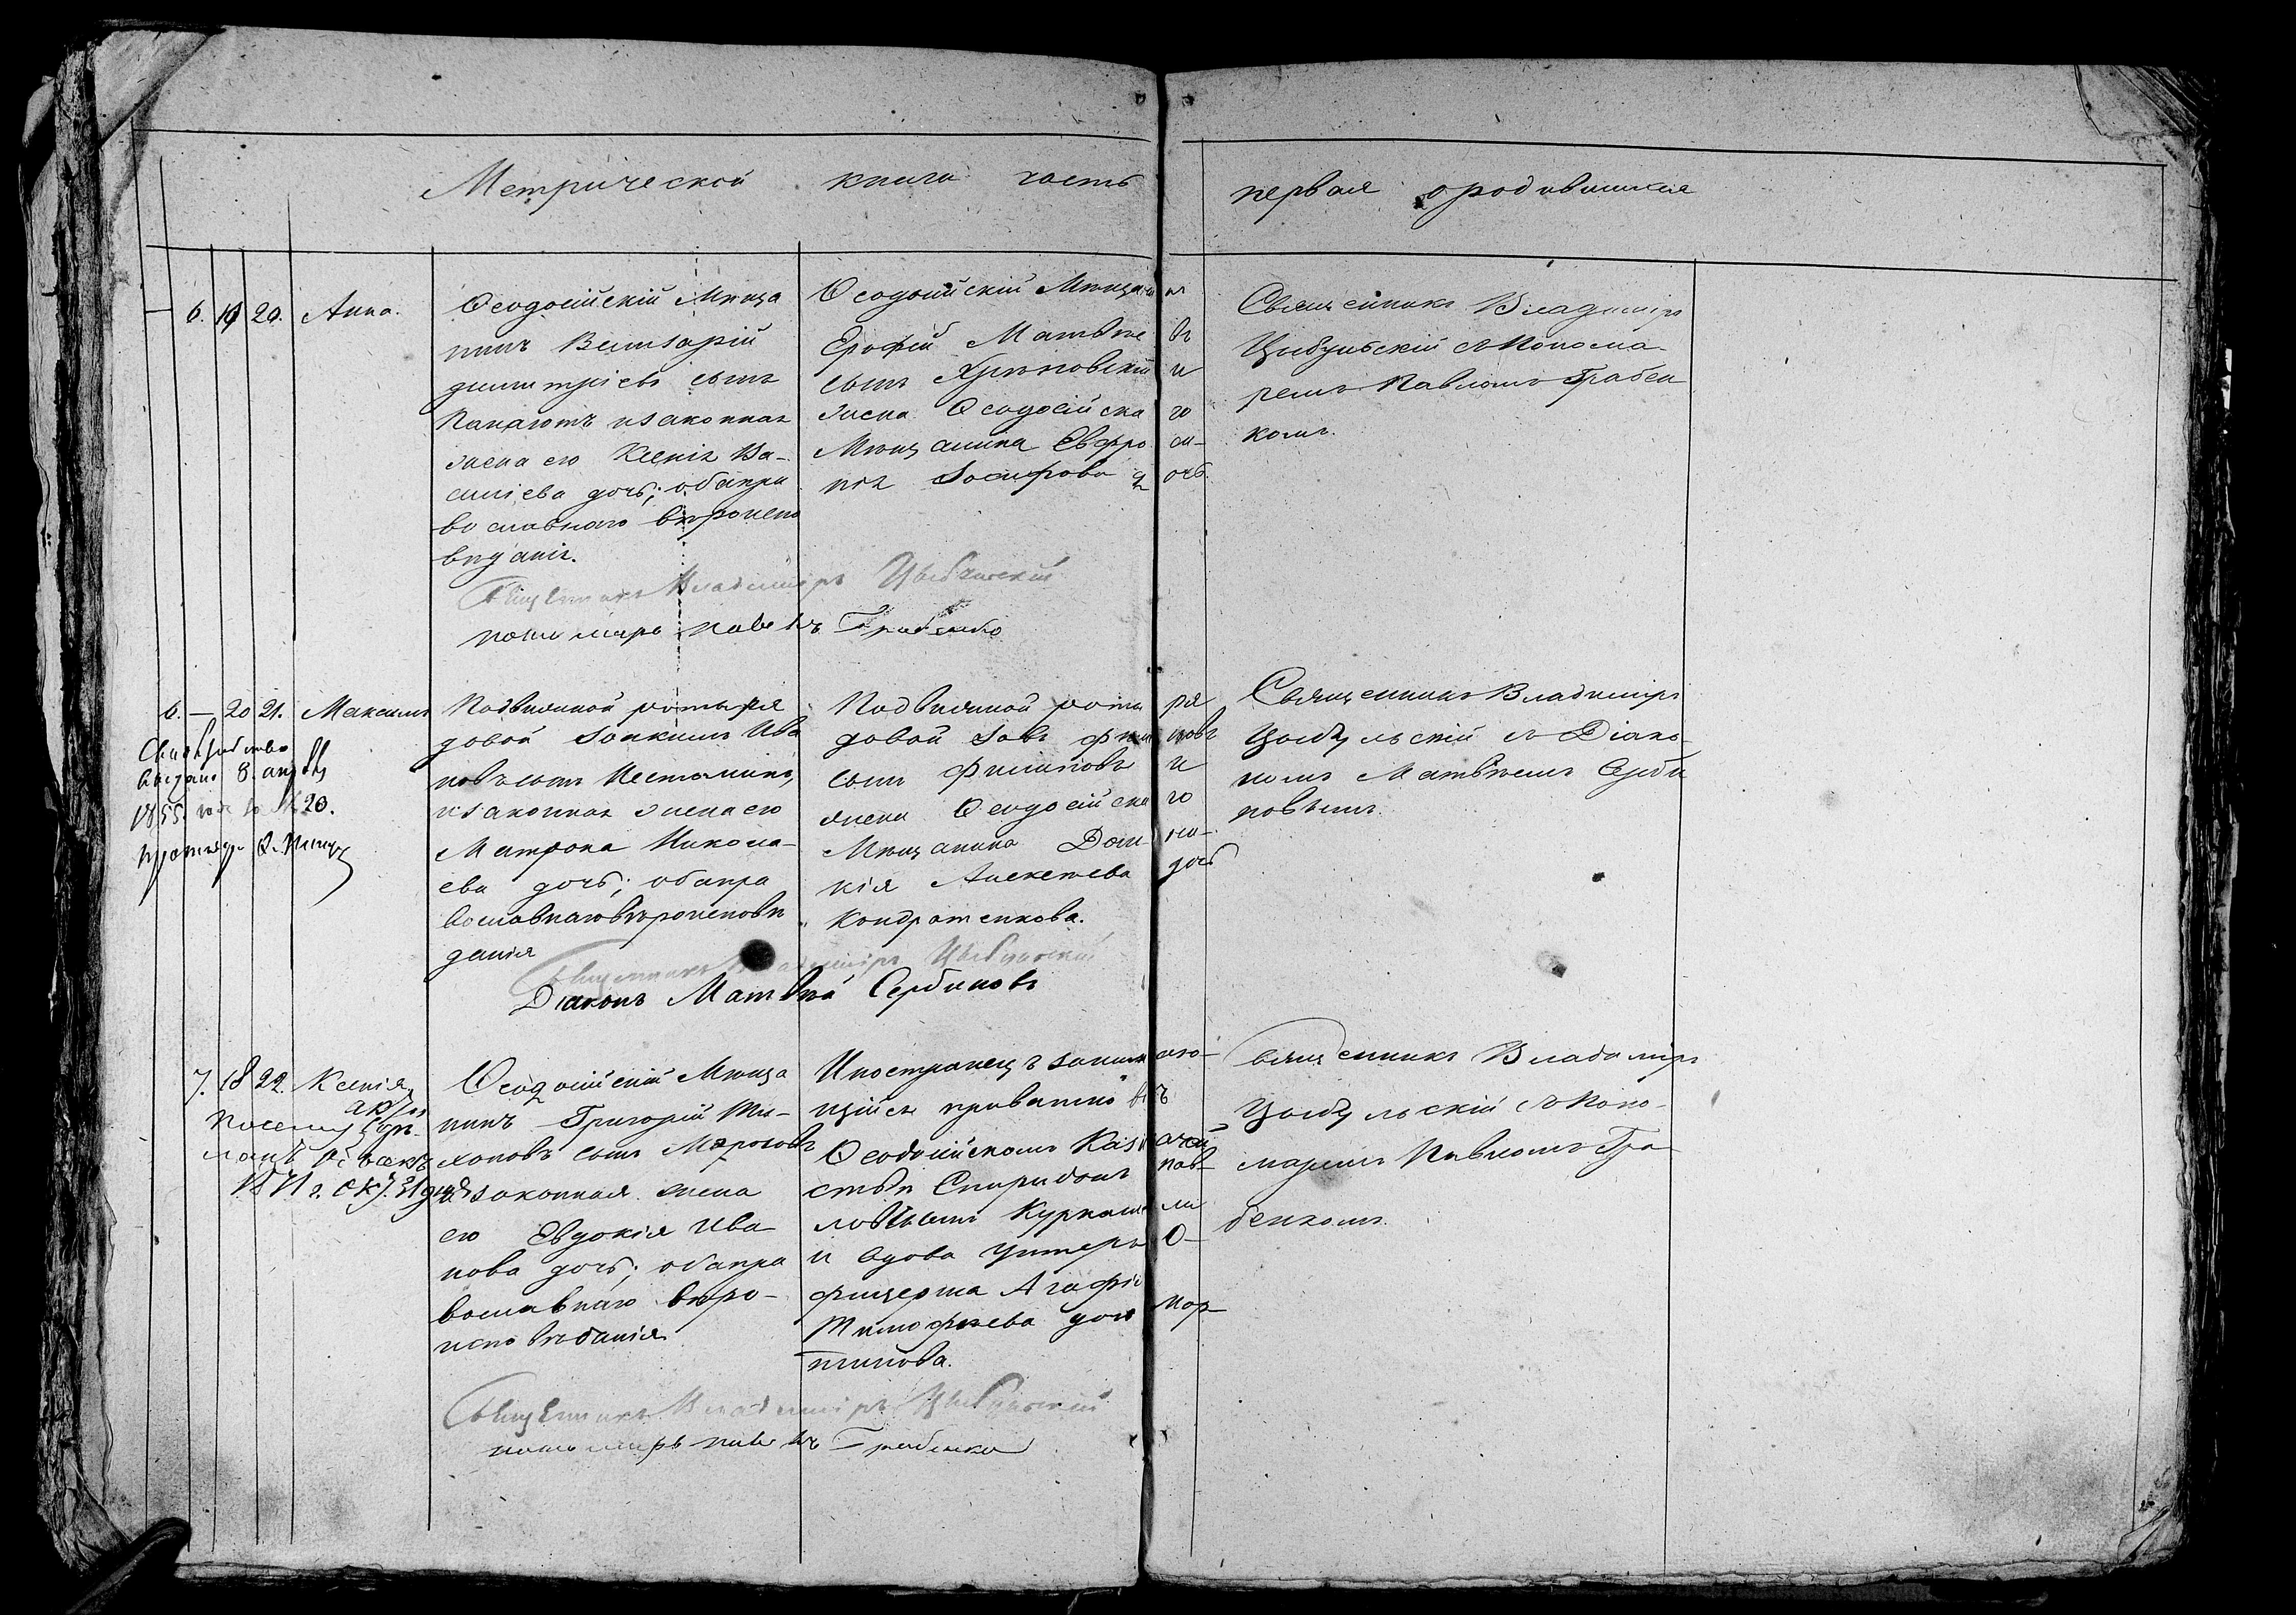 Метрической книги часть первая о родившихся
6. 19 20. Анна.
Ѳеодосійскій Мѣща
нинъ Виссарій
димитріевъ сынъ
Панаготъ изаконная
жена его Ксенія Ва-
силіева дочь; оба пра
вославнаго вѣроиспо
вѣданія.
Ѳеодосійскій Мѣщанинъ
Ерофей Матвѣевъ
сынъ Хрѣновскій и
жена Ѳеодосійскаго
Мѣщанина Евфроси-
нія Іосифова дочь.
Священникъ Владиміръ
Цыбульскій съ Понома-
ремъ Павломъ Грабен
комъ.
Священникъ Владиміръ Цыбульскій
пономарь Павелъ Грабенко
6. — 20 21. Максимъ
Свидѣтельство
выдано 8. апрѣля
1855 года за № 20.
Подвижной роты ря
довой Іоакимъ Ива
новъ сынъ Нестылинъ,
изаконная жена его
Матрона Никола-
ева дочь; оба пра
вославнаго вѣроисповѣ
данія
Подвижной роты ря
довой Іовъ Филиповъ
сынъ Филиповъ и
жена Ѳеодосійскаго
Мѣщанина Домни-
кія Алексеева дочь
Кондратенкова.
Священникъ Владиміръ
Цыбульскій съ Діако
номъ Матвѣемъ Серби
новымъ.
Священникъ Владиміръ Цыбульскій
Діаконъ Матвѣй Сербиновъ
7. 18 22. Ксенія
Ѳеодосійскій Мѣща
нинъ Григорій Ти-
хоновъ сынъ Морозовъ
изаконная жена
его Евдокія Ива-
нова дочь; оба пра
вославнаго вѣро-
исповѣданія
Иностранецъ занимаю-
щійся приватно въ
Ѳеодосійскомъ Казначей
ствѣ Спиридонъ Пав-
ловъ сынъ Куркали
и вдова Унтеръ О-
фицерша Агафія
Тимофѣева дочь Мар-
тынова.
Священникъ Владиміръ
Цыбульскій съ Поно-
маремъ Павломъ Гра
бенкомъ.
Священникъ Владиміръ Цыбульскій
пономарь Павелъ Грабенко